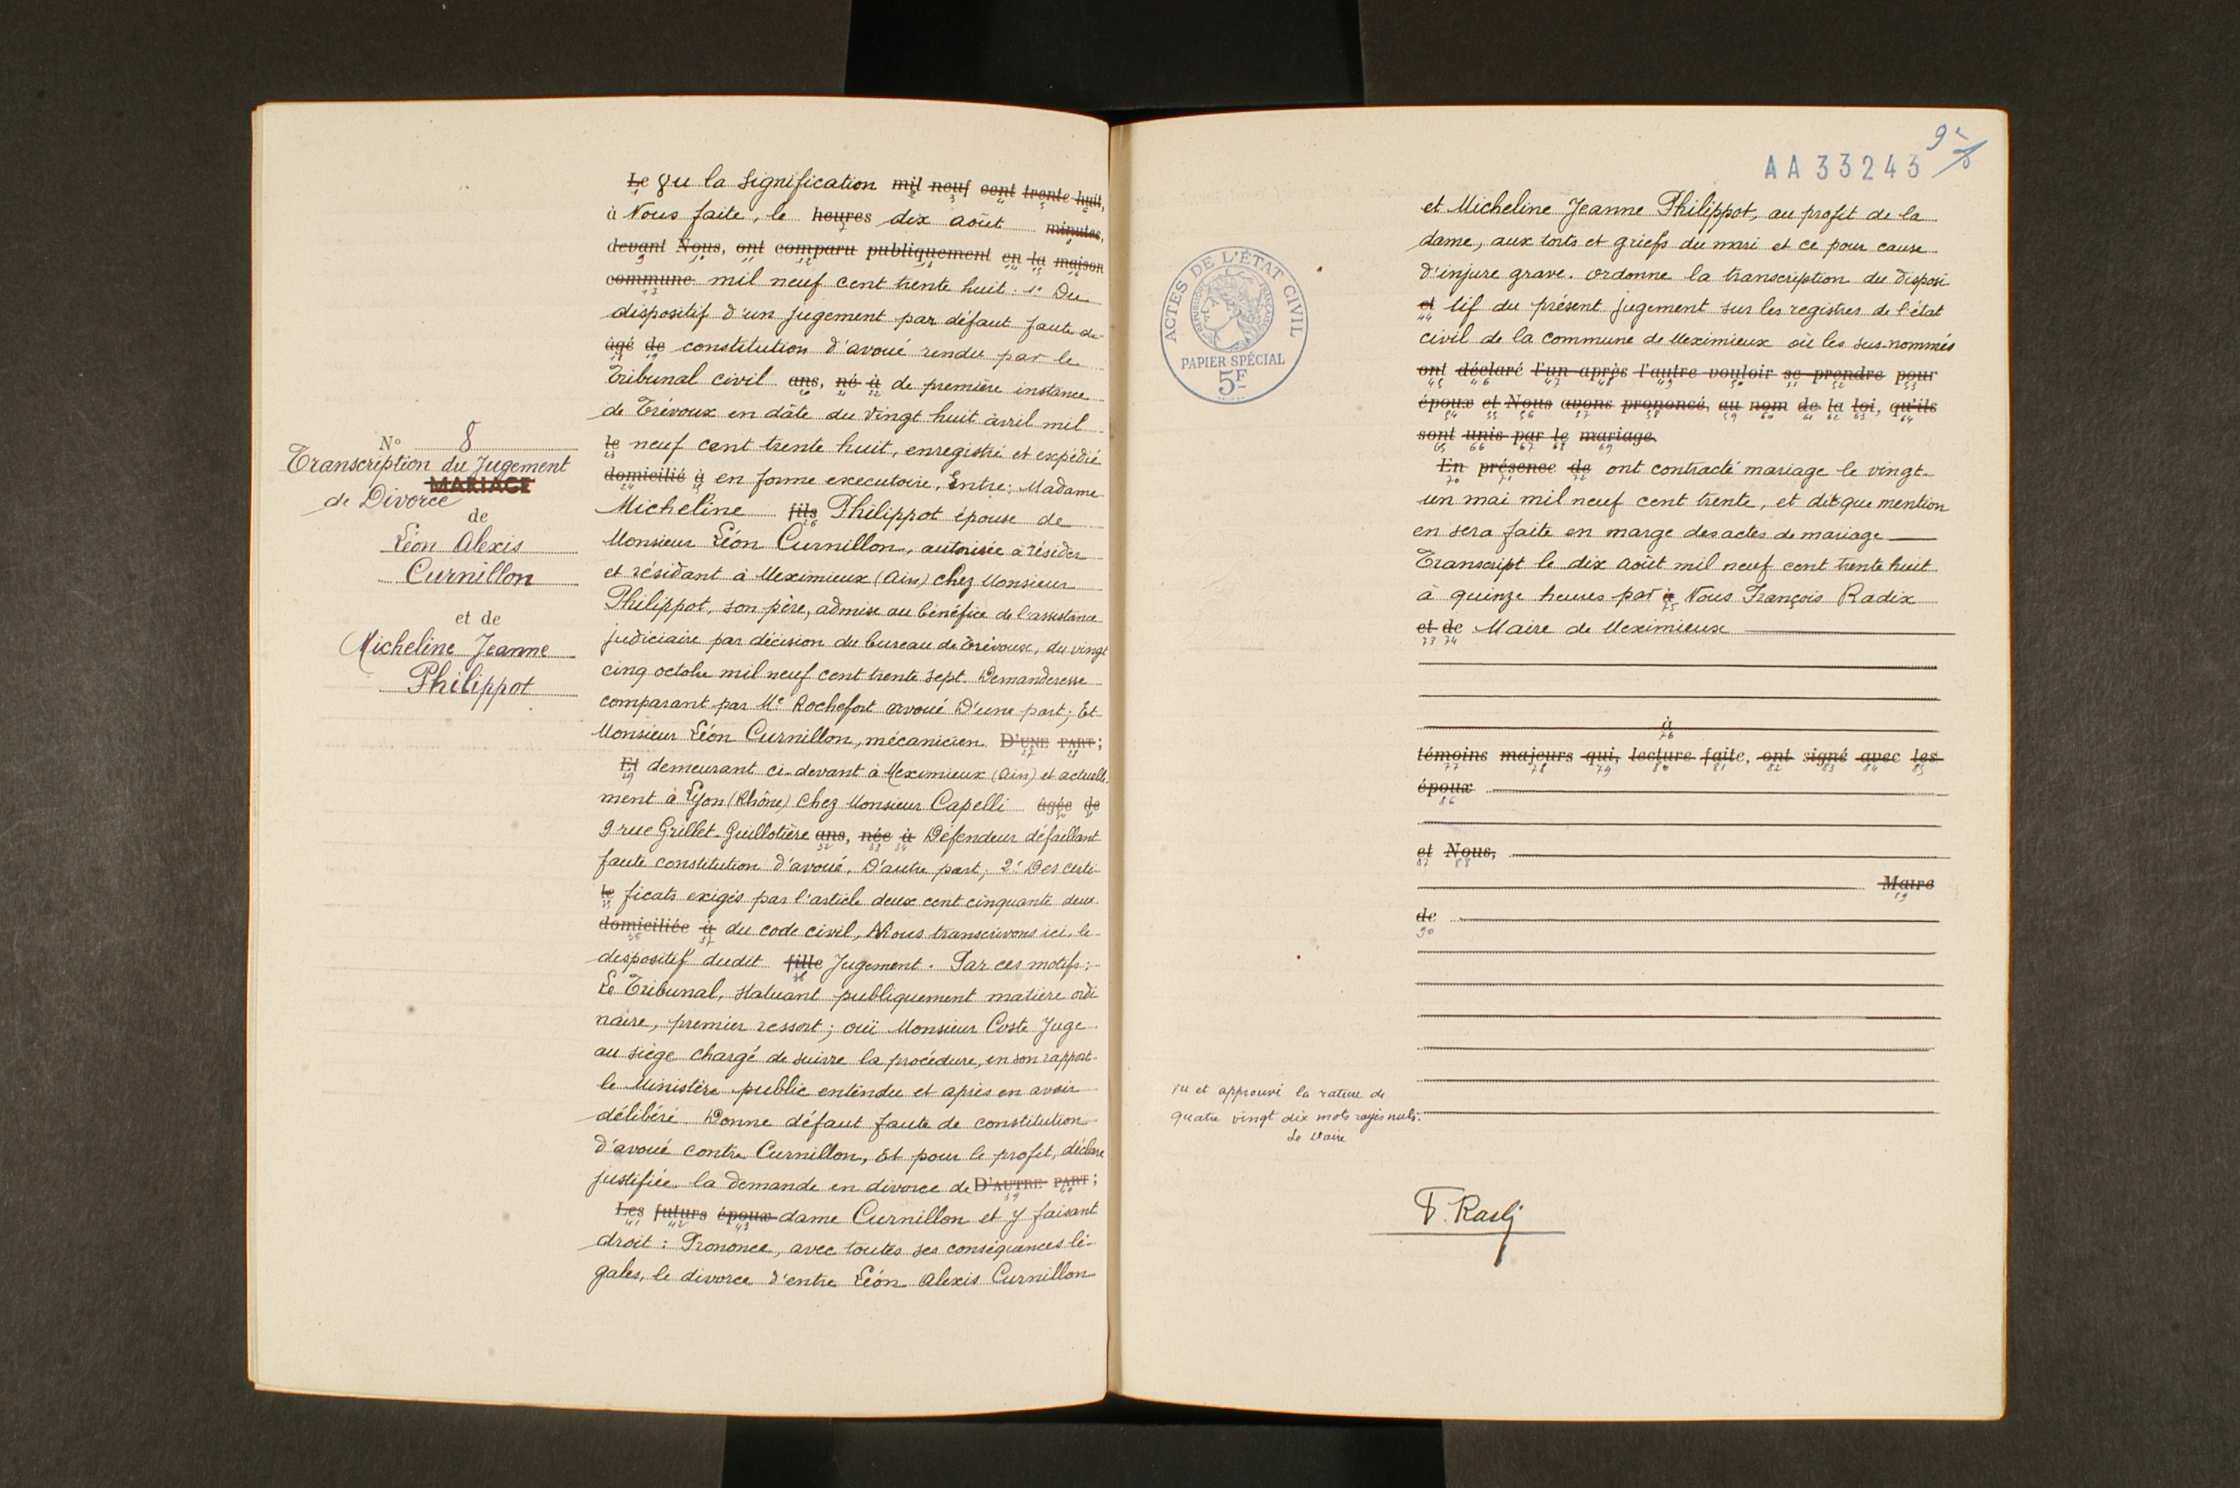 N° 8
Transcription du Jugement
MARIAGE
de Divorce
de
Léon Alexis
Curnillon
et de
Micheline Jeanne
Philippot
Le Vu la signification mil neuf cent trente huit,
à Nous faite, le heures dix août minutes,
devant Nous, ont comparu publiquement en la maison
commune mil neuf cent trente huit : 1° Du
dispositif d'un jugement par défaut faute de
âgé de constitution d'avoué rendu par le
Tribunal civil ans, né à de première instance
de Trévoux en dâte du vingt huit avril mil
le neuf cent trente huit, enregistré et expédié
domicilié à en forme executoire, Entre : Madame
Micheline fils Philippot épouse de
Monsieur Léon Curnillon, autorisée à résider
et résidant à Meximieux (Ain) chez Monsieur
Philippot, son père, admise au bénéfice de l'assistance
judiciaire par décision du bureau de Trévoux, du vingt
cinq octobre mil neuf cent trente sept. Demanderesse
comparant par Me Rochefort avoué D'une part ; Et
Monsieur Léon Curnillon, mécanicien D'UNE PART ;
Et demeurant ci-devant à Meximieux (Ain) et actuelle-
ment à Lyon (Rhône) chez Monsieur Capelli âgée de
9 rue Grillet-Guillotière ans, née à Défendeur défaillant
faute constitution d'avoué, D'autre part ; 2° Des certi-
le ficats exigés par l'article deux cent cinquante deux
domiciliée à du code civil, Nous transcrivons ici, le
dispositif dudit fille Jugement. Par ces motifs :
Le Tribunal, statuant publiquement matière ordi
naire, premier ressort ; ouï Monsieur Coste Juge
au siège chargé de suivre la procédure, en son rapport
le Ministère public entendu et après en avoir
délibéré Donne défaut faute de constitution
d'avoué contre Curnillon, Et pour le profit, déclare
justifiée la demande en divorce de D'AUTRE PART ;
Les futurs époux dame Curnillon et y faisant
droit : Prononce, avec toutes ses conséquences lé-
gales, le divorce d'entre Léon Alexis Curnillon
AA 33243
ACTES DE L'ÉTAT CIVIL
RÉPUBLIQUE FRANÇAISE
PAPIER SPÉCIAL
5F
et Micheline Jeanne Philippot, au profit de la
dame, aux torts et griefs du mari et ce pour cause
d'injure grave. Ordonne la transcription du disposi
et tif du présent jugement sur les registres de l'état
civil de la commune de Meximieux où les sus-nommés
ont déclaré l'un après l'autre vouloir se prendre pour
époux et Nous avons prononcé, au nom de la loi, qu'ils
sont unis par le mariage.
En présence de ont contracté mariage le vingt-
un mai mil neuf cent trente, et dit que mention
en sera faite en marge des actes de mariage
Transcript le dix août mil neuf cent trente huit
à quinze heures par à Nous François Radix
et de Maire de Meximieux
à
témoins majeurs qui, lecture faite, ont signé avec les
époux
et Nous,
Maire
de
vu et approuvé la rature de
quatre vingt dix mots rayés nuls.
Le Maire